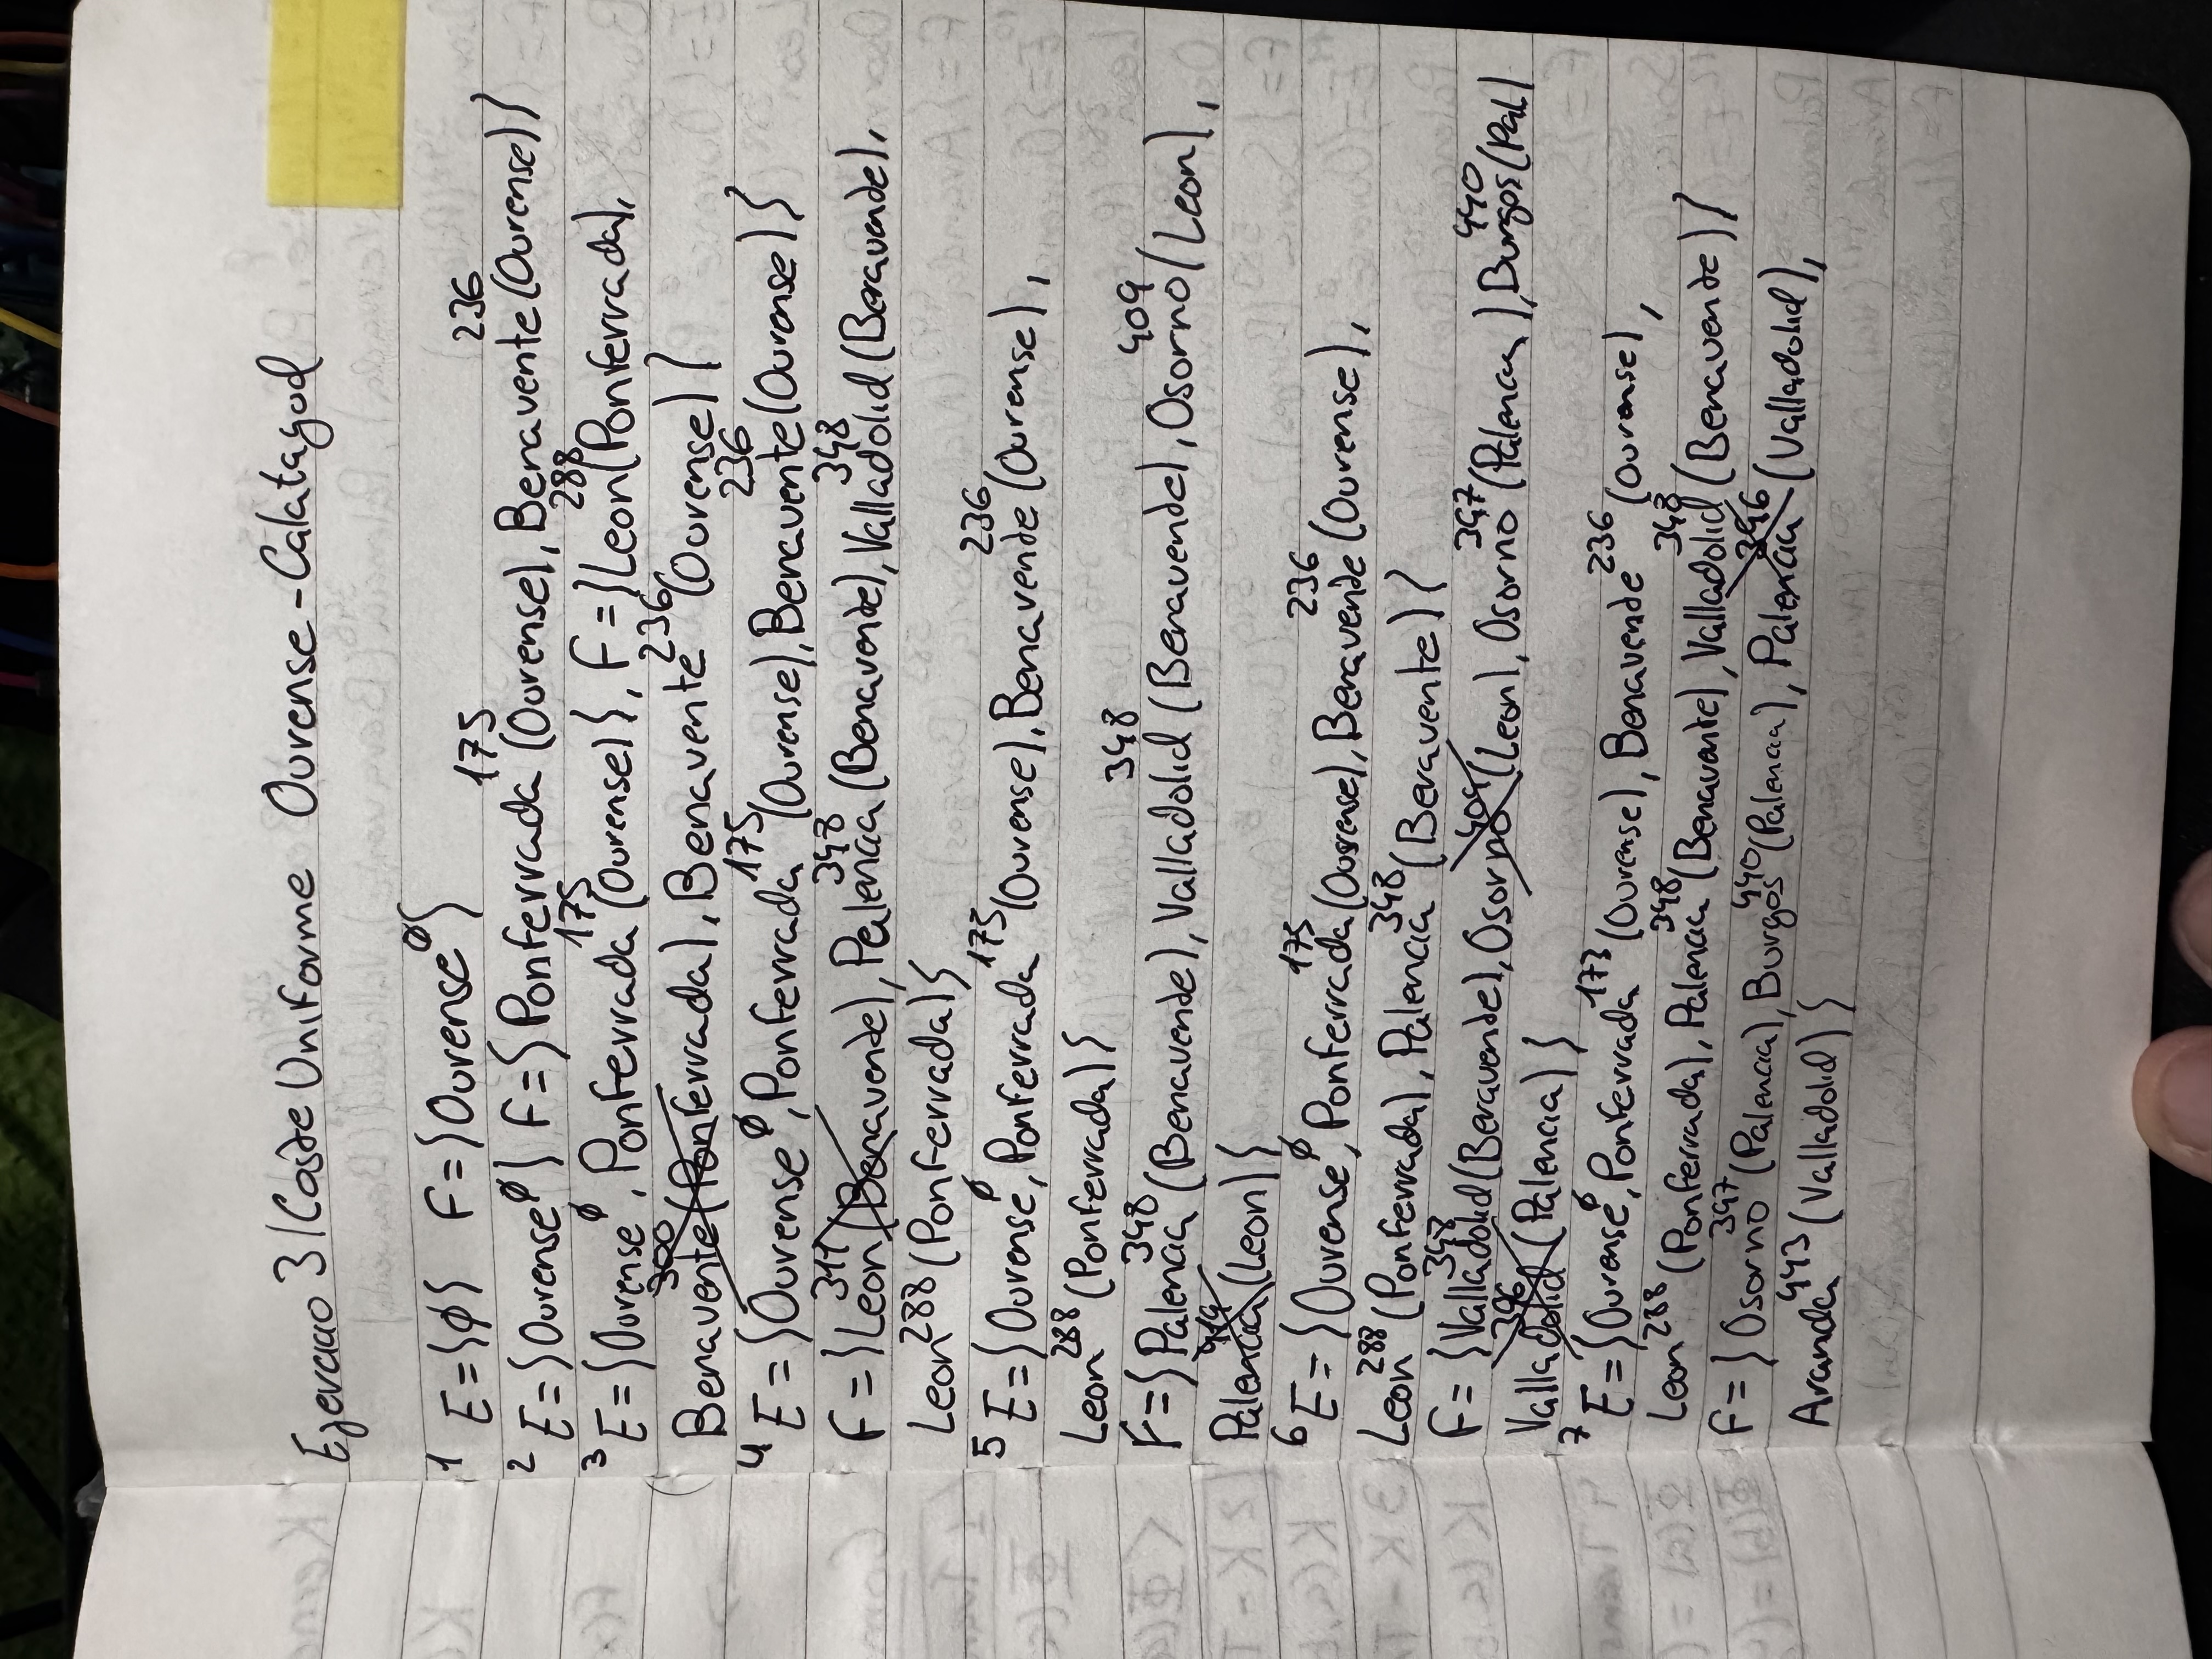 Ejercicio 3 / Coste Uniforme Ourense - Calatayud
1 E = {∅} F = {Ourense^∅}
2 E = {Ourense^∅} F = {Ponferrada^175 (Ourense), Benavente^236 (Ourense)}
3 E = {Ourense^∅, Ponferrada^175 (Ourense)}, F = {Leon^288 (Ponferrada),
Benavente^300 (Ponferrada), Benavente^236 (Ourense)}
4 E = {Ourense^∅, Ponferrada^175 (Ourense), Benavente^236 (Ourense)}
F = {Leon^311 (Benavende), Palencia^348 (Benavende), Valladolid^348 (Benavende),
Leon^288 (Ponferrada)}
5 E = {Ourense^∅, Ponferrada^175 (Ourense), Benavende^236 (Ourense),
Leon^288 (Ponferrada)}
F = {Palencia^348 (Benavende), Valladolid^348 (Benavende), Osorno^409 (Leon),
Palencia^419 (Leon)}
6 E = {Ourense^∅, Ponferrada^175 (Ourense), Benavende^236 (Ourense),
Leon^288 (Ponferrada), Palencia^348 (Benavente)}
F = {Valladolid^348 (Benavende), Osorno^409 (Leon), Osorno^397 (Palencia), Burgos^440 (Pal)
Valladolid^396 (Palencia)}
7 E = {Ourense^∅, Ponferrada^173 (Ourense), Benavende^236 (Ourense),
Leon^288 (Ponferrada), Palencia^348 (Benavente), Valladolid^348 (Benavente)}
F = {Osorno^397 (Palencia), Burgos^440 (Palencia), Palencia^396 (Valladolid),
Aranda^443 (Valladolid)}